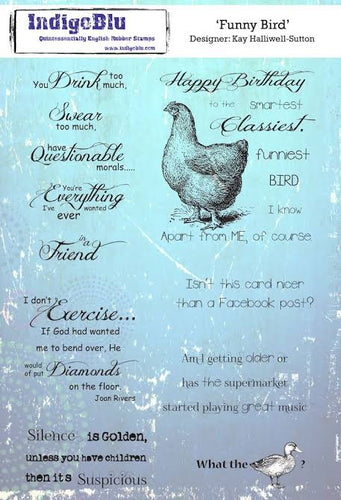 IndigoBlu
Quintessentially English Rubber Stamps
www.indigoblu.com
'Funny Bird'
Designer: Kay Halliwell-Sutton
You Drink too much,
Swear
too much,
have
Questionable
morals.....
You're
Everything
I've wanted
ever
in a
Friend
I don't
Exercise...
If God had wanted
me to bend over, He
would of put Diamonds
on the floor.
Joan Rivers
Silence is Golden,
unless you have children
then it's Suspicious
Happy Birthday
to the smartest
Classiest,
funniest
BIRD
I know
Apart from ME, of course.
Isn't this card nicer
than a Facebook post?
Am I getting older or
has the supermarket
started playing great music
What the ?